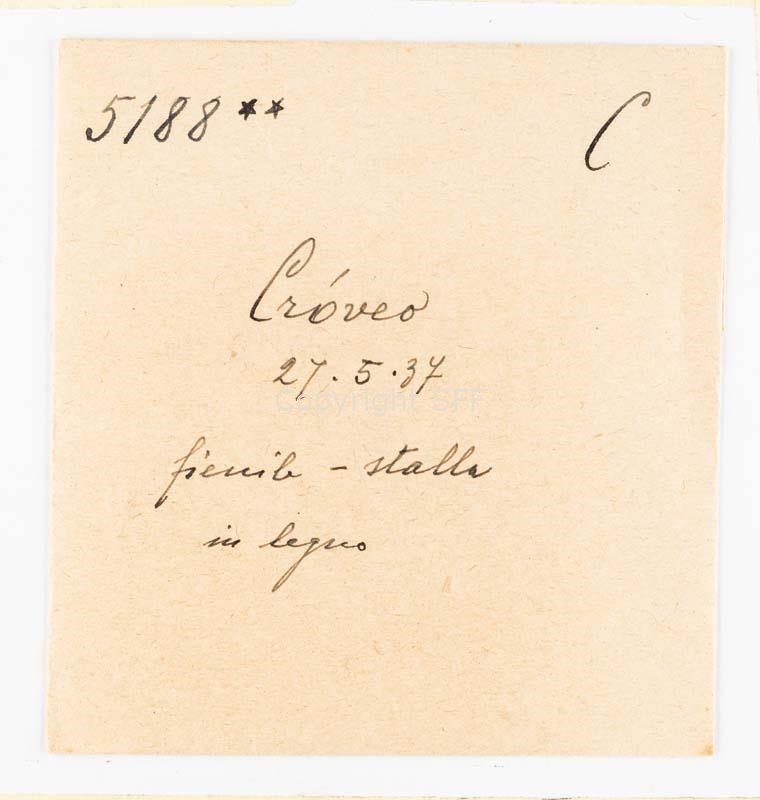 5188** C
Cróveo
27.5.37
Copyright SFF
fienile - stalla
in legno